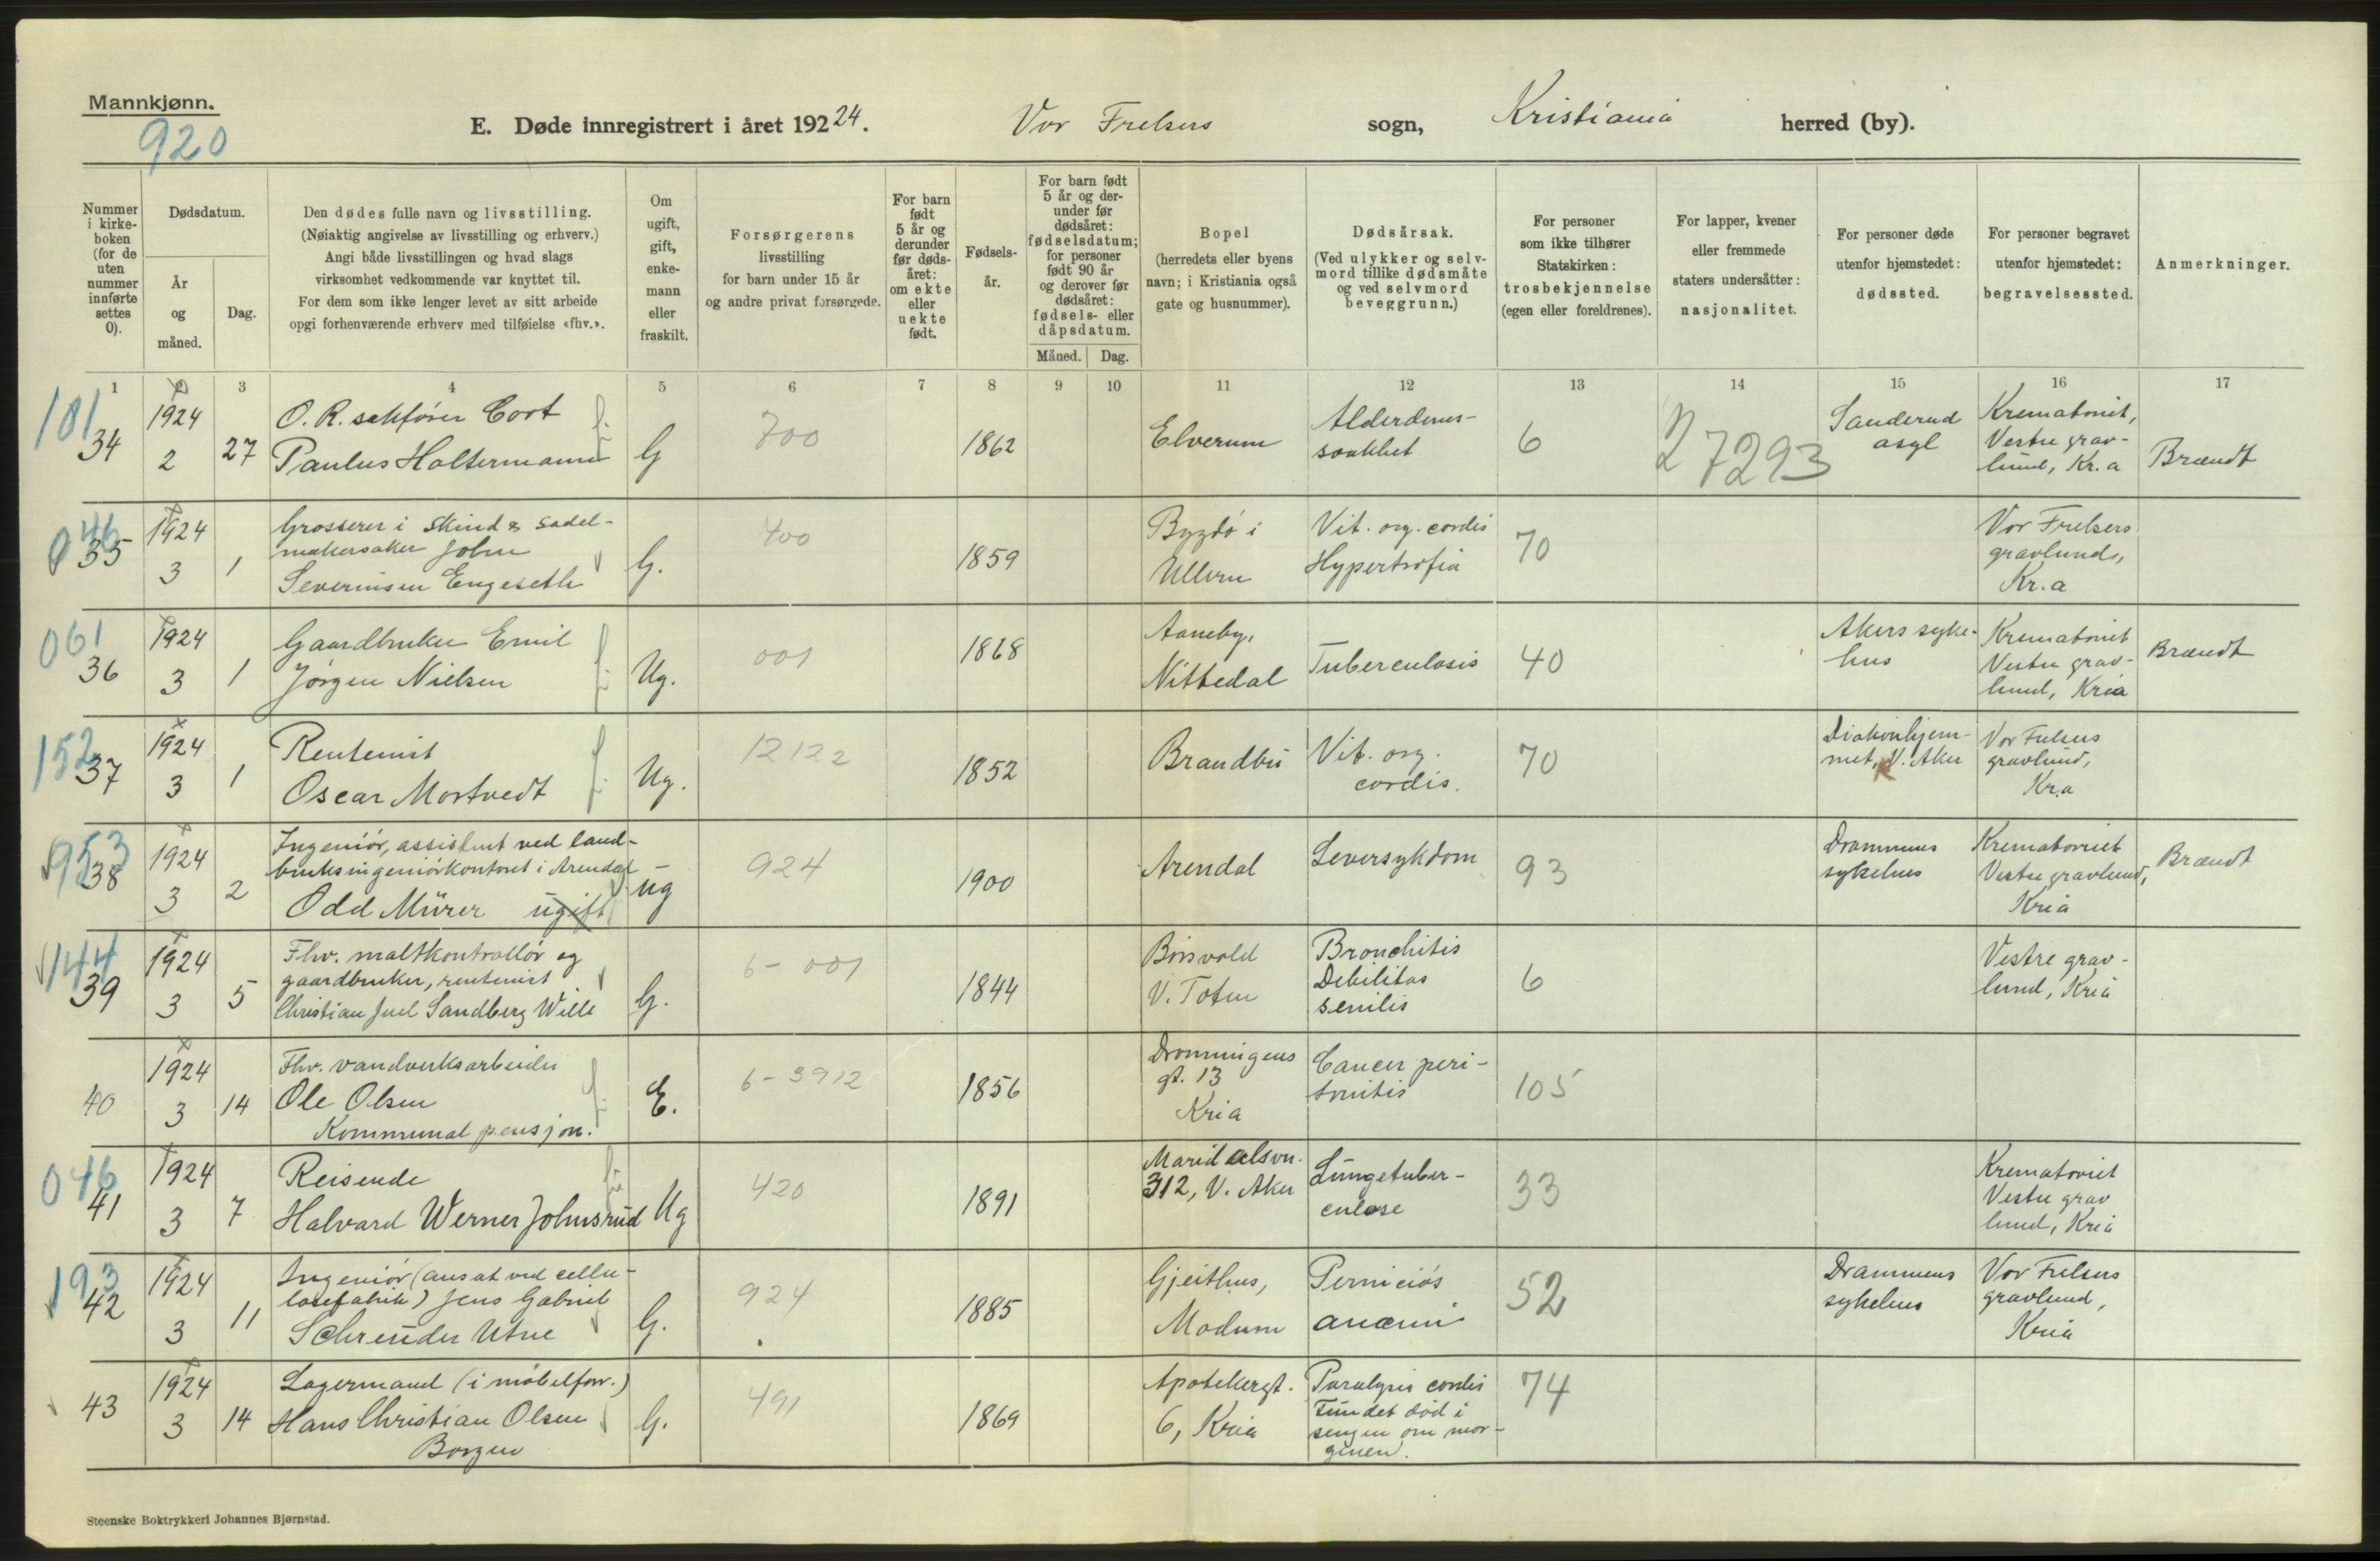 Mannkjønn.
920
E. Døde innregistrert i året 192 24. Vor Frelsers sogn, Kristiania herred (by).
Nummer i kirke-boken (for de uten nummer innførte settes 0).
Dødsdatum.
År og måned.
Dag.
Den dødes fulle navn og livsstilling.
(Nøiaktig angivelse av livsstilling og erhverv.)
Angi både livsstillingen og hvad slags
virksomhet vedkommende var knyttet til.
For dem som ikke lenger levet av sitt arbeide
opgi forhenværende erhverv med tilføielse «fhv.».
Om ugift, gift, enke-mann eller fraskilt.
Forsørgerens
livsstilling
for barn under 15 år
og andre privat forsørgede.
For barn født 5 år og derunder før døds-året: om ekte eller uekte født.
Fødsels-år.
For barn født 5 år og der-under før dødsåret: fødselsdatum; for personer født 90 år og derover før dødsåret: fødsels- eller dåpsdatum.
Måned. Dag.
Bopel
(herredets eller byens
navn; i Kristiania også
gate og husnummer).
Dødsårsak.
(Ved ulykker og selv-
mord tillike dødsmåte
og ved selvmord
beveggrunn.)
For personer
som ikke tilhører
Statskirken:
trosbekjennelse
(egen eller foreldrenes).
For lapper, kvener
eller fremmede
staters undersåtter:
nasjonalitet.
For personer døde
utenfor hjemstedet:
dødssted.
For personer begravet
utenfor hjemstedet:
begravelsessted.
Anmerkninger.
1 2 3 4 5 6 7 8 9 10 11 12 13 14 15 16 17
101
34 1924 2 27
O. R. sakfører Cort
Paulus Holtermann
G 700 1862 Elverum
Alderdoms-
svakhet
6 27293
Sanderud
asyl
Krematoriet,
Vestre grav-
lund, Kr.a
Brændt
046
35 1924 3 1
Grosserer i skind & sadel-
makersaker John
Severinsen Engeseth
G. 400 1859
Bygdö i
Ullern
Vit. org. cordis
Hypertrofia
70
Vor Frelsers
gravlund,
Kr.a
061
36 1924 3 1
Gaardbruker Emil
Jørgen Nielsen
Ug. 001 1868
Aaneby,
Nittedal
Tuberculosis
40
Akers syke-
hus
Krematoriet
Vestre grav-
lund, Kria
Brændt
152
37 1924 3 1
Rentenist
Oscar Mortvedt
Ug. 12122 1852
Brandbu
Vit. org.
cordis.
70
Diakonhjem-
met, V. Aker
Vor Frelsers
gravlund,
Kr.a
953
38 1924 3 2
Ingeniör, assistent ved land-
bruksingeniörkontoret i Arendal -
Odd Mürer ugift
Ug 924 1900
Arendal
Leversykdom
93
Drammens
sykehus
Krematoriet
Vestre gravlund,
Kria
Brændt
144
39 1924 3 5
Fhv. maltkontrollör og
gaardbruker, rentenist
Christian Juel Sandberg Wille
G. 6-001 1844
V. Toten
Bronchitis
Debilitas
senilis
6
Vestre grav-
lund, Kria
40 1924 3 14
Fhv. vandverksarbeider
Ole Olsen
Kommunal pensjon.
E. 6-3912 1856
Dronningens
gt. 13
Kria
Cancer peri-
tonitis
105
046
41 1924 3 7
Reisende
Halvard Werner Johnsrud
Ug 420 1891
Maridalsvn.
312, V. Aker
Lungetuber-
culose
33
Krematoriet
Vestre grav
lund, Kria
193
42 1924 3 11
Ingeniör (ansat ved cellu-
losefabrik) Jens Gabriel
Schreuder Utne
G. 924 1885
Gjeithus,
Modum
Perniciös
anæmi
52
Drammens
sykehus
Vor Frelsers
gravlund,
Kria
43 1924 3 14
Lagermand (i möbelforr.)
Hans Christian Olsen
Borgen
G. 491 1869
Apotekergt.
6, Kria
Paralysis cordis
Fundet död i
sengen om mor-
genen.
74
Steenske Boktrykkeri Johannes Bjørnstad.